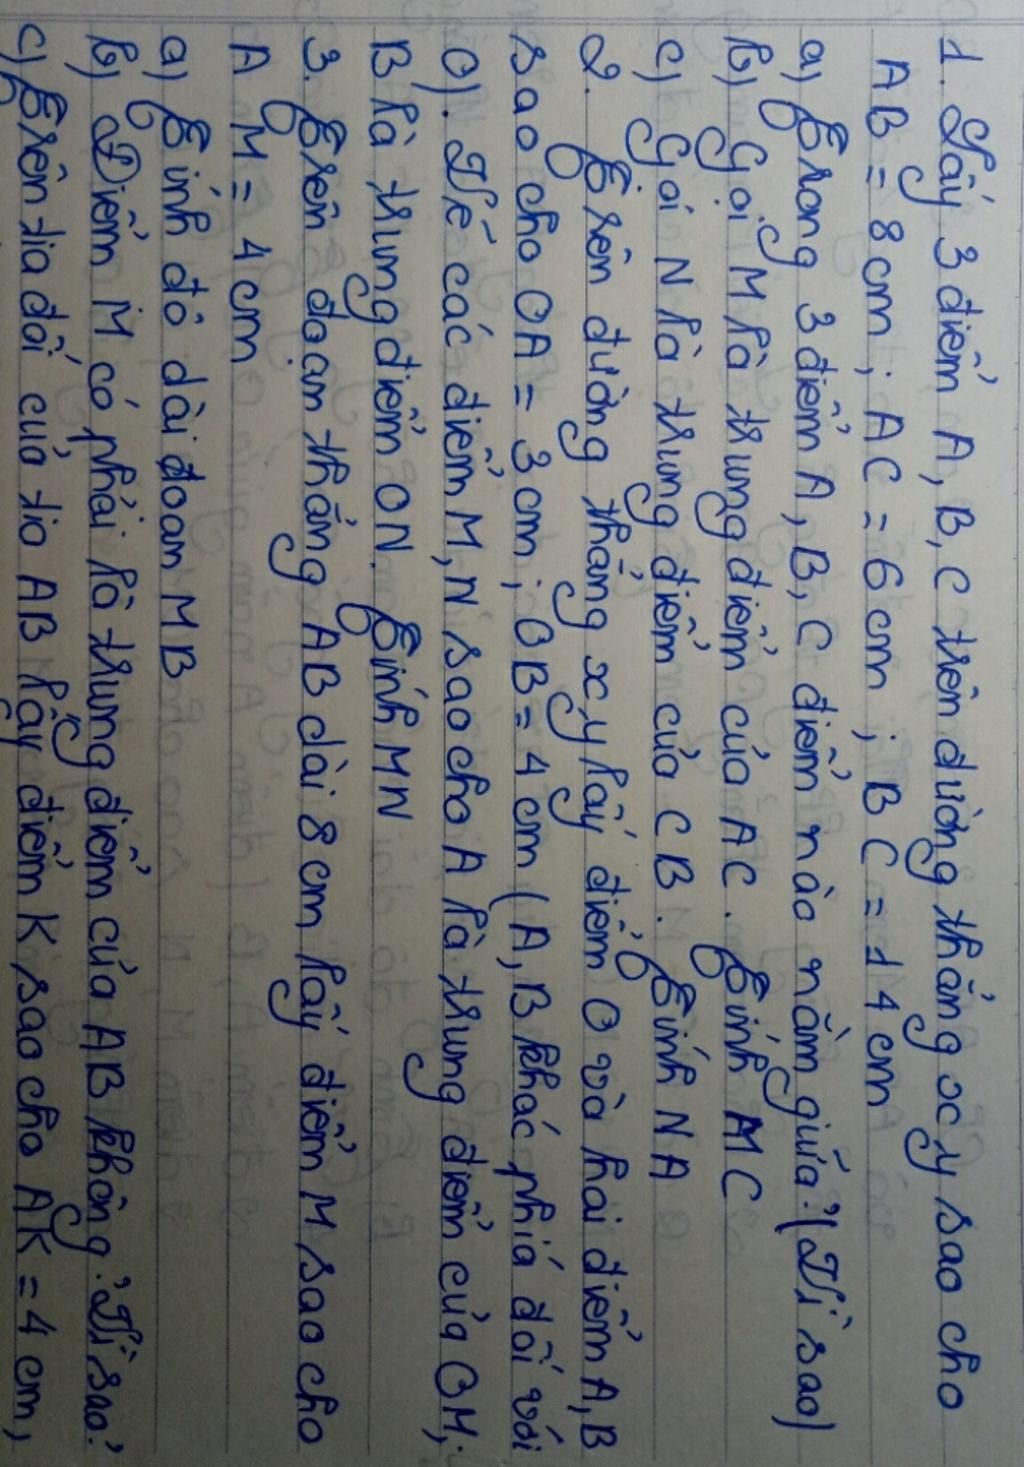 1. Lấy 3 điểm A, B, C trên đường thẳng xy sao cho
AB = 8cm; AC = 6cm; BC = 14cm
a) Trong 3 điểm A, B, C điểm nào nằm giữa? (Vì sao)
b) Gọi M là trung điểm của AC. Tính MC
c) Gọi N là trung điểm của CB. Tính NA
2. Trên đường thẳng xy lấy điểm O và hai điểm A, B
sao cho OA = 3cm; OB = 4cm (A, B khác phía đối với
O). Vẽ các điểm M, N sao cho A là trung điểm của OM;
B là trung điểm ON. Tính MN
3. Trên đoạn thẳng AB dài 8cm lấy điểm M sao cho
AM = 4cm
a) Tính độ dài đoan MB
b) Điểm M có phải là trung điểm của AB không? Vì sao?
c) Trên tia đối của tia AB lấy điểm K sao cho AK = 4cm,